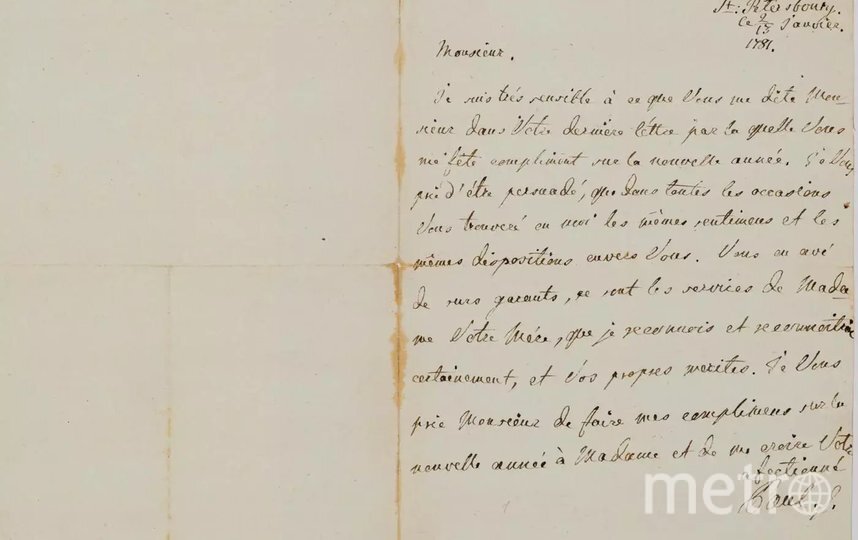 St: Petersbourg.
Ce 2/13 Janvier.
1781.
Monsieur.
Je suis trés sensible à ce que Vous me dite Mon-
sieur dans Votre derniére léttre par la quelle Vous
me féte compliment sur la nouvelle année. Je Vous
prié d'étre persuadé, que dans toutes les occasions
Vous trouveré en moi les mêmes sentimens et les
mêmes dispositions envers Vous. Vous en avé
de surs garants, ce sont les services de Mada-
me Votre Mére, que je reconnois et reconnoitrai
certainement, et Vos propres merites. Je Vous
prie Monsieur de faire mes complimens sur la
nouvelle année à Madame et de me croire Votre
affectionné
Paul.
metro